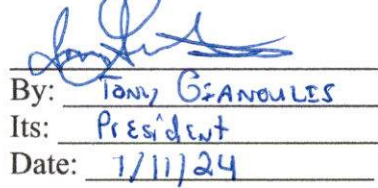 By: Tony GIANOULIS
Its: President
Date: 1/11/24